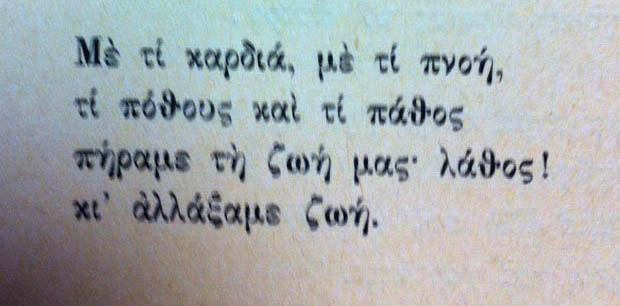 Μὲ τί καρδιά, μὲ τί πνοή,
τί πόθους καὶ τί πάθος
πήραμε τὴ ζωή μας· λάθος!
κι’ ἀλλάξαμε ζωή.